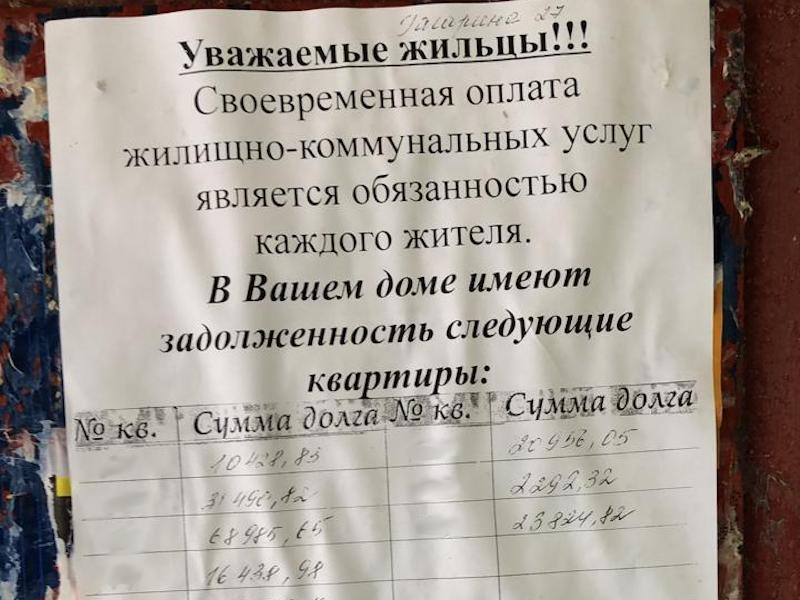 Гагарина 27
Уважаемые жильцы!!!
Своевременная оплата
жилищно-коммунальных услуг
является обязанностью
каждого жителя.
В Вашем доме имеют
задолженность следующие
квартиры:
№ кв. Сумма долга № кв. Сумма долга
10428,83 20956,05
31490,82 2292,32
68985,65 23824,82
16438,98